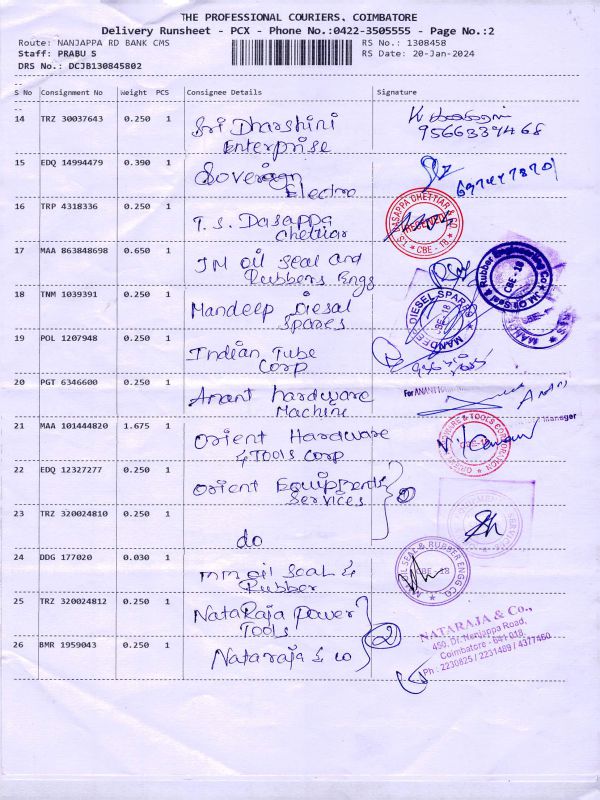 THE PROFESSIONAL COURIERS, COIMBATORE
Delivery Runsheet - PCX - Phone No.:0422-3505555 - Page No.:2
Route: NANJAPPA RD BANK CMS
RS No.: 1308458
Staff: PRABU S
RS Date: 20-Jan-2024
DRS No.: DCJB130845802
S No Consignment No Weight PCS Consignee Details Signature
14 TRZ 30037643 0.250 1 Sri Dharshini
Enterprise
9566339468
15 EDQ 14994479 0.390 1 Soveraign
Electro
16 TRP 4318336 0.250 1 T.S. Dasappa
Chettiar
DASAPPA CHETTIAR & CO
RECEIVED
CBE - 18
17 MAA 863848698 0.650 1 JM oil seal and
Rubbers Engg
CBE - 18
18 TNM 1039391 0.250 1 Mandeep Diesal
Spares
MANDEEP DIESEL SPARES
CBE - 18
19 POL 1207948 0.250 1 Indian Tube
Corp
20 PGT 6346600 0.250 1 Anant hardware
Machine
For ANANT
Manager
21 MAA 101444820 1.675 1 Orient Hardware
& Tools Corp
ORIENT HARDWARE & TOOLS CORPORATION
CBE-18
22 EDQ 12327277 0.250 1 Orient Equipments
Services
2
23 TRZ 320024810 0.250 1 do
24 DDG 177020 0.030 1 mm oil seal &
Rubber
OIL SEAL & RUBBER ENGG CO.
CBE - 18
25 TRZ 320024812 0.250 1 NataRaja power
Tools
2
NATARAJA & Co.,
450, Dr. Nanjappa Road,
Coimbatore - 641 018.
Ph : 2230825 / 2231489 / 4377460
26 BMR 1959043 0.250 1 Nataraja & co